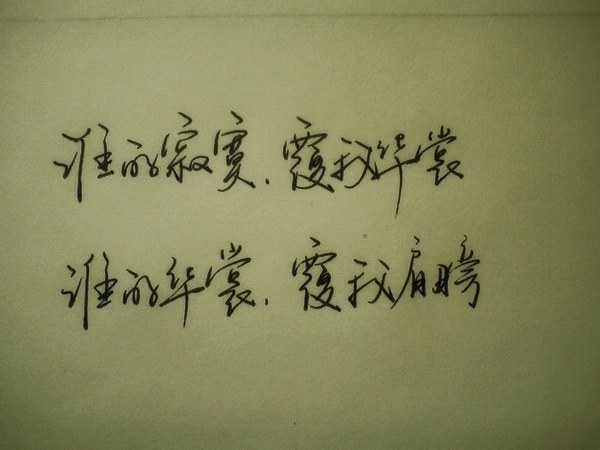 谁的寂寞，覆我华裳
谁的华裳，覆我肩膀